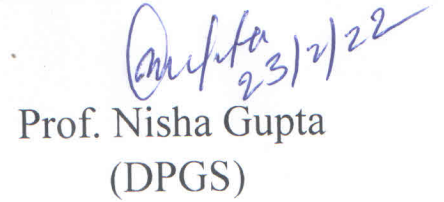 Gupta
23/2/22
Prof. Nisha Gupta
(DPGS)